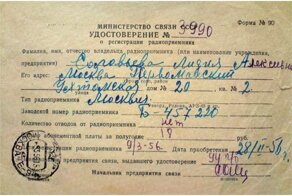 МИНИСТЕРСТВО СВЯЗИ
Форма № 90
УДОСТОВЕРЕНИЕ № 3990
о регистрации радиоприемника
Фамилия, имя, отчество владельца радиоприемника (или наименование учреждения, предприятия) Соловьева Лидия Алексеевна
Его адрес: Москва Первомайский
дом № 20 кв. 2
Тип радиоприемника Москвич
Заводской номер радиоприемника Б-457220
Количество отводов от радиоприемника нет
абонементной платы за полугодие 18
9/3-56. Дата приобретения 28/II-56 г.
предприятия связи, выдавшего удостоверение
Начальник предприятия связи